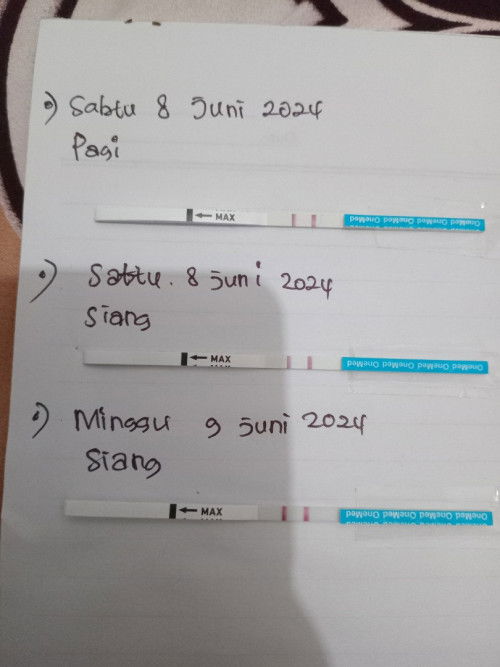 Sabtu 8 Juni 2024
Pagi
← MAX
OneMed OneMed OneMed OneMed
Sabtu. 8 Juni 2024
Siang
← MAX
OneMed OneMed OneMed OneMed
Minggu 9 Juni 2024
Siang
← MAX
OneMed OneMed OneMed OneMed